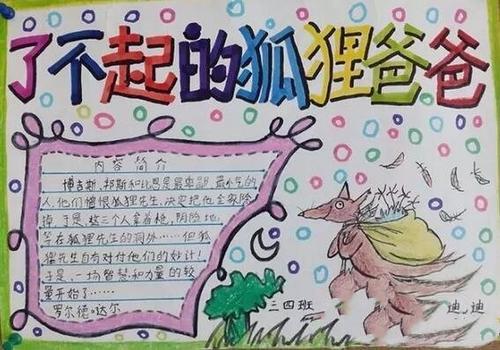 了不起的狐狸爸爸
内容简介
博吉斯、邦斯和比恩是最卑鄙、最小气的
人，他们憎恨狐狸先生，决定把他全家除
掉。于是，这三个人拿着枪，阴险地
等在狐狸先生的洞外……但狐
狸先生自有对付他们的妙计！
于是，一场智慧和力量的较
量开始了……
罗尔德·达尔
三四班
迪迪